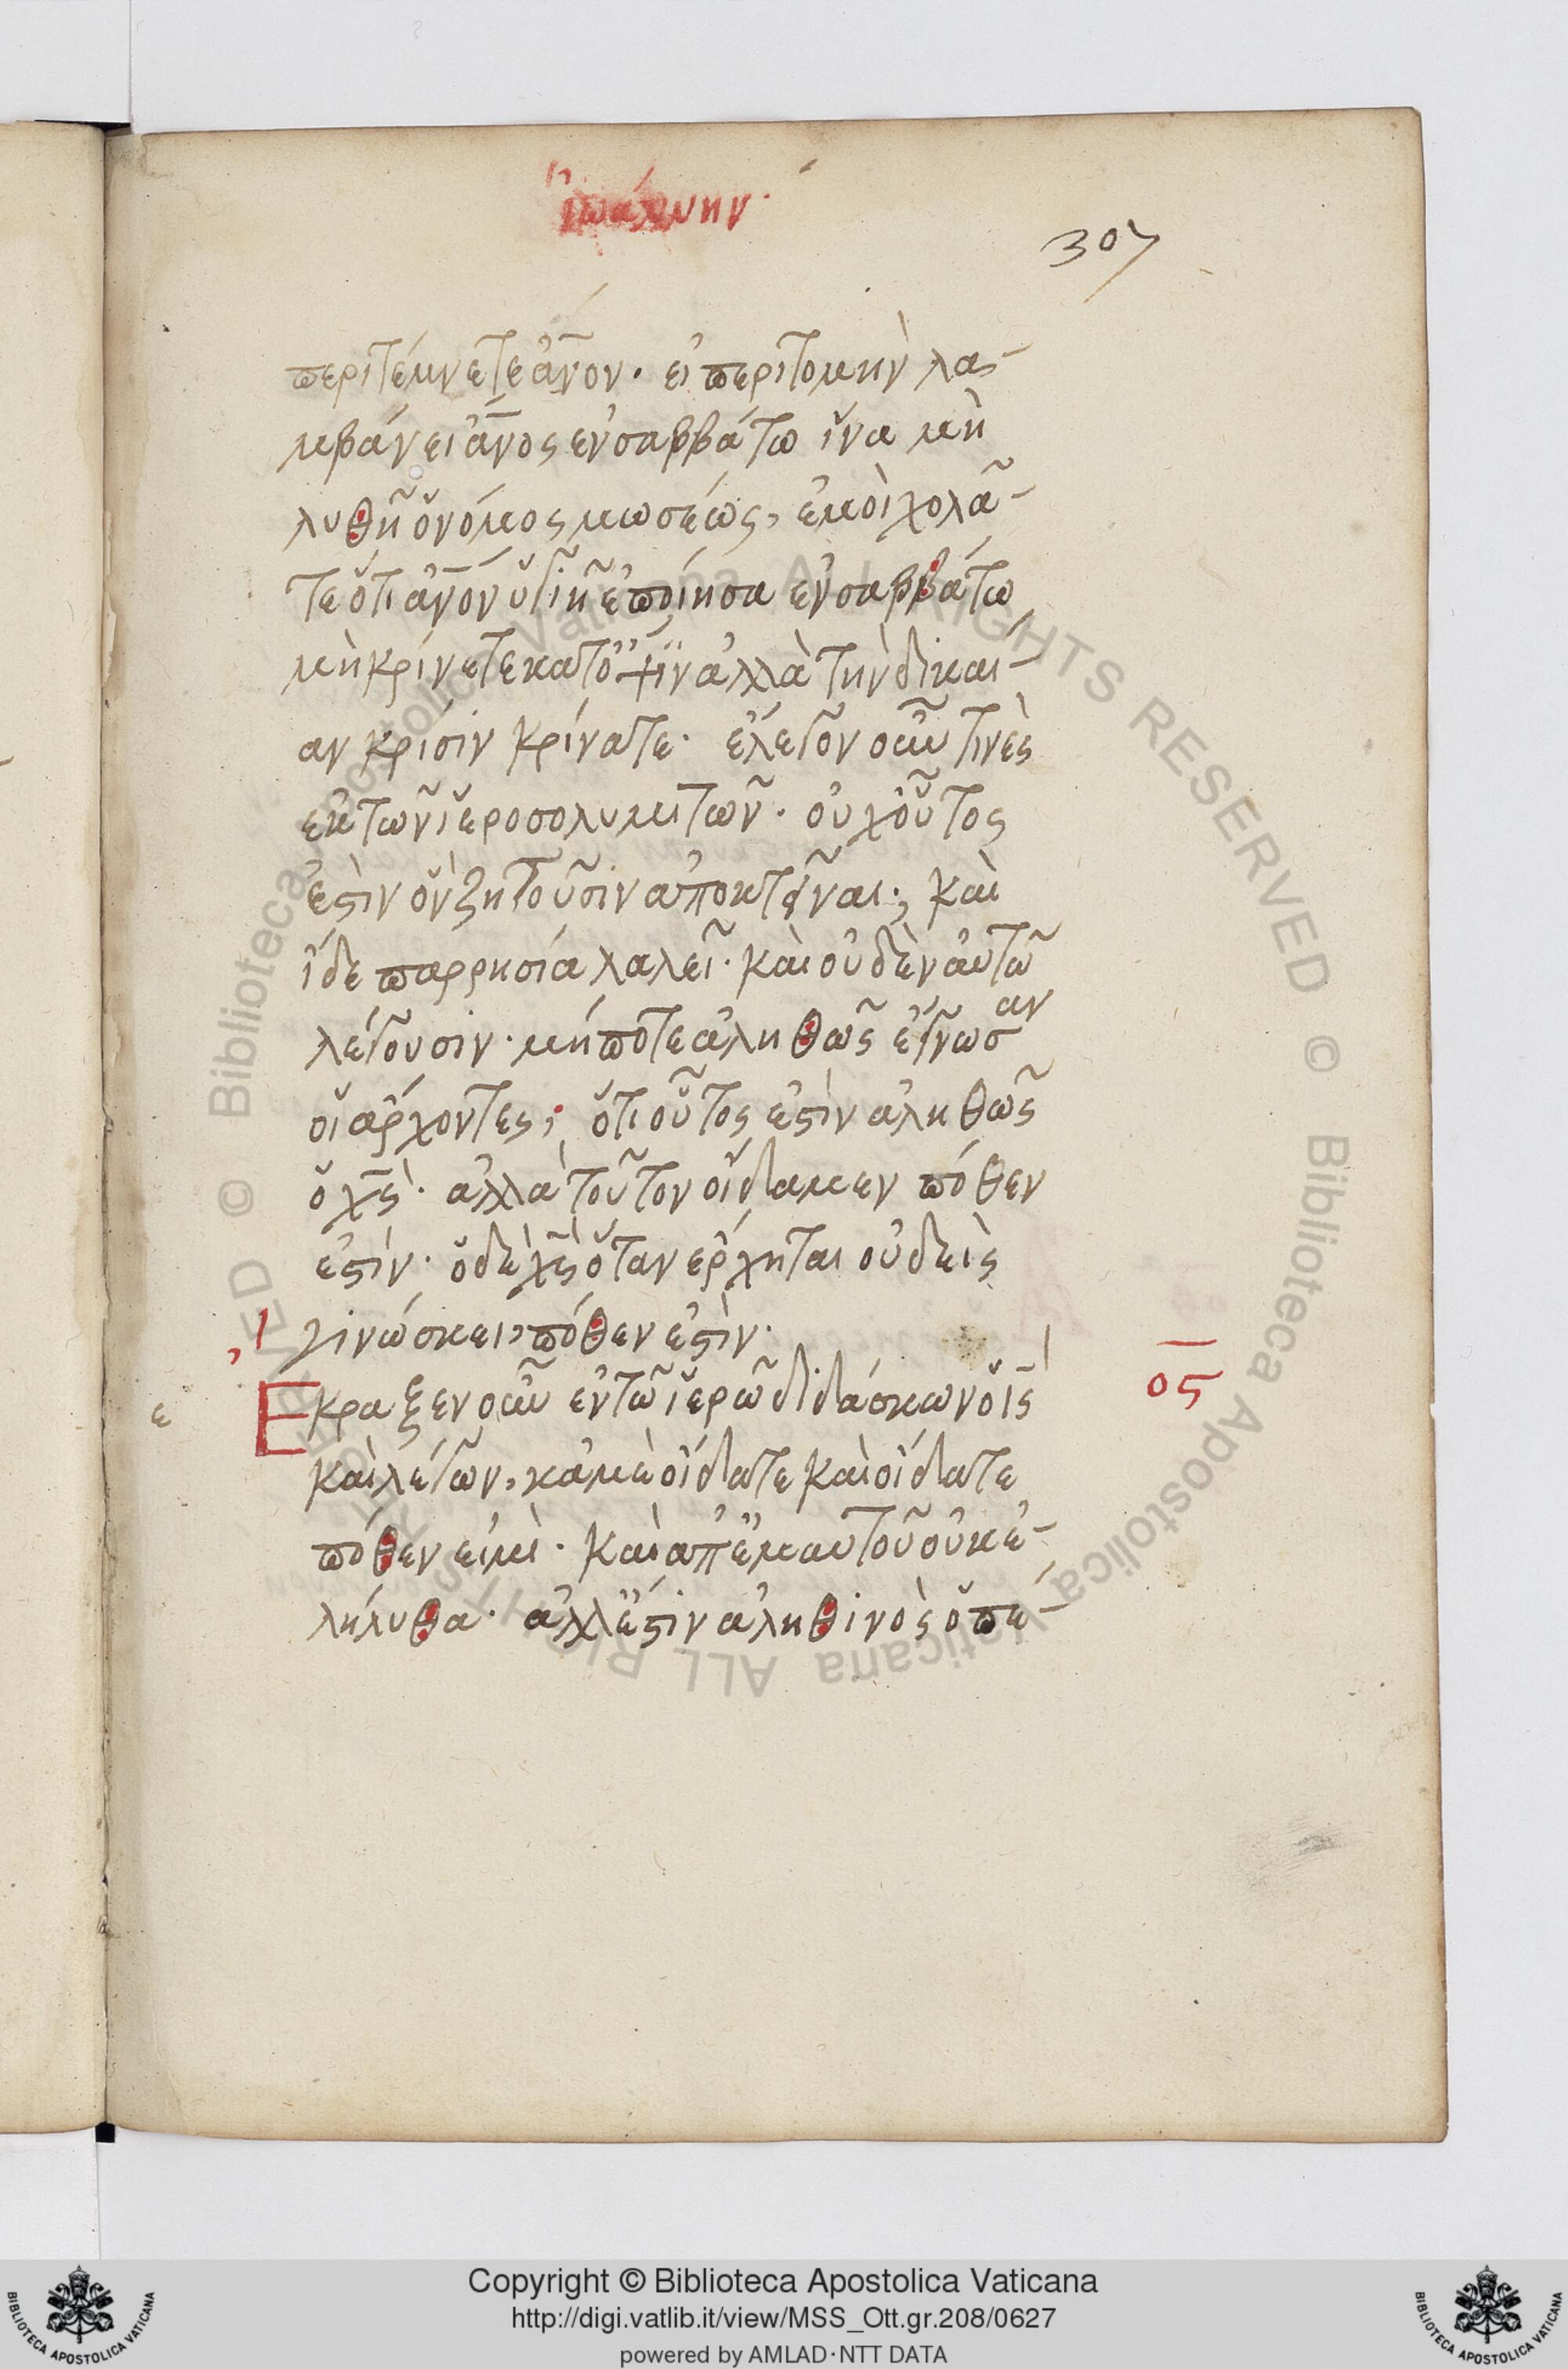 ἰωάννην·
307
περιτέμνετε ἄν̅ον· εἰ περιτομὴν λα-
μβάνει ἄν̅ος ἐν σαββάτω ἵνα μὴ
λυθῆ ὁ νόμος μωσέως, ἐμοὶ χολᾶ-
τε ὅτι ἄν̅ον ὑγιῆ ἐποίησα ἐν σαββάτω
μὴ κρίνετε κατ' ὄψιν ἀλλὰ τὴν δικαί-
αν κρίσιν κρίνατε· ἔλεγον οὖν τινὲς
ἐκ τῶν ἱεροσολυμιτῶν· οὐχ οὗτος
ἐστὶν ὃν ζητοῦσιν ἀποκτεῖναι; καὶ
ἴδε παρρησία λαλεῖ· καὶ οὐδὲν αὐτῶ
λέγουσιν· μήποτε ἀληθῶς ἔγνωσαν
οἱ ἄρχοντες; ὅτι οὗτος ἐστὶν ἀληθῶς
ὁ χ̅ς· ἀλλὰ τοῦτον οἴδαμεν πόθεν
ἐστίν· ὁ δὲ χ̅ς ὅταν ἔρχηται οὐδεὶς
γινώσκει, πόθεν ἐστὶν·
Εκραξεν οὖν ἐν τῶ ἱερῶ διδάσκων ὁ ι̅ς
ο̅ϛ
ε
καὶ λέγων, κἀμὲ οἴδατε καὶ οἴδατε
πόθεν εἰμὶ· καὶ ἀπ' ἐμαυτοῦ οὐκ ἐ-
λήλυθα· ἀλλ' ἔστιν ἀληθινὸς ὁ πέ-
© Biblioteca Apostolica Vaticana ALL RIGHTS RESERVED © Biblioteca Apostolica Vaticana ALL RIGHTS RESERVED
Copyright © Biblioteca Apostolica Vaticana
http://digi.vatlib.it/view/MSS_Ott.gr.208/0627
powered by AMLAD·NTT DATA
BIBLIOTECA APOSTOLICA VATICANA
BIBLIOTECA APOSTOLICA VATICANA